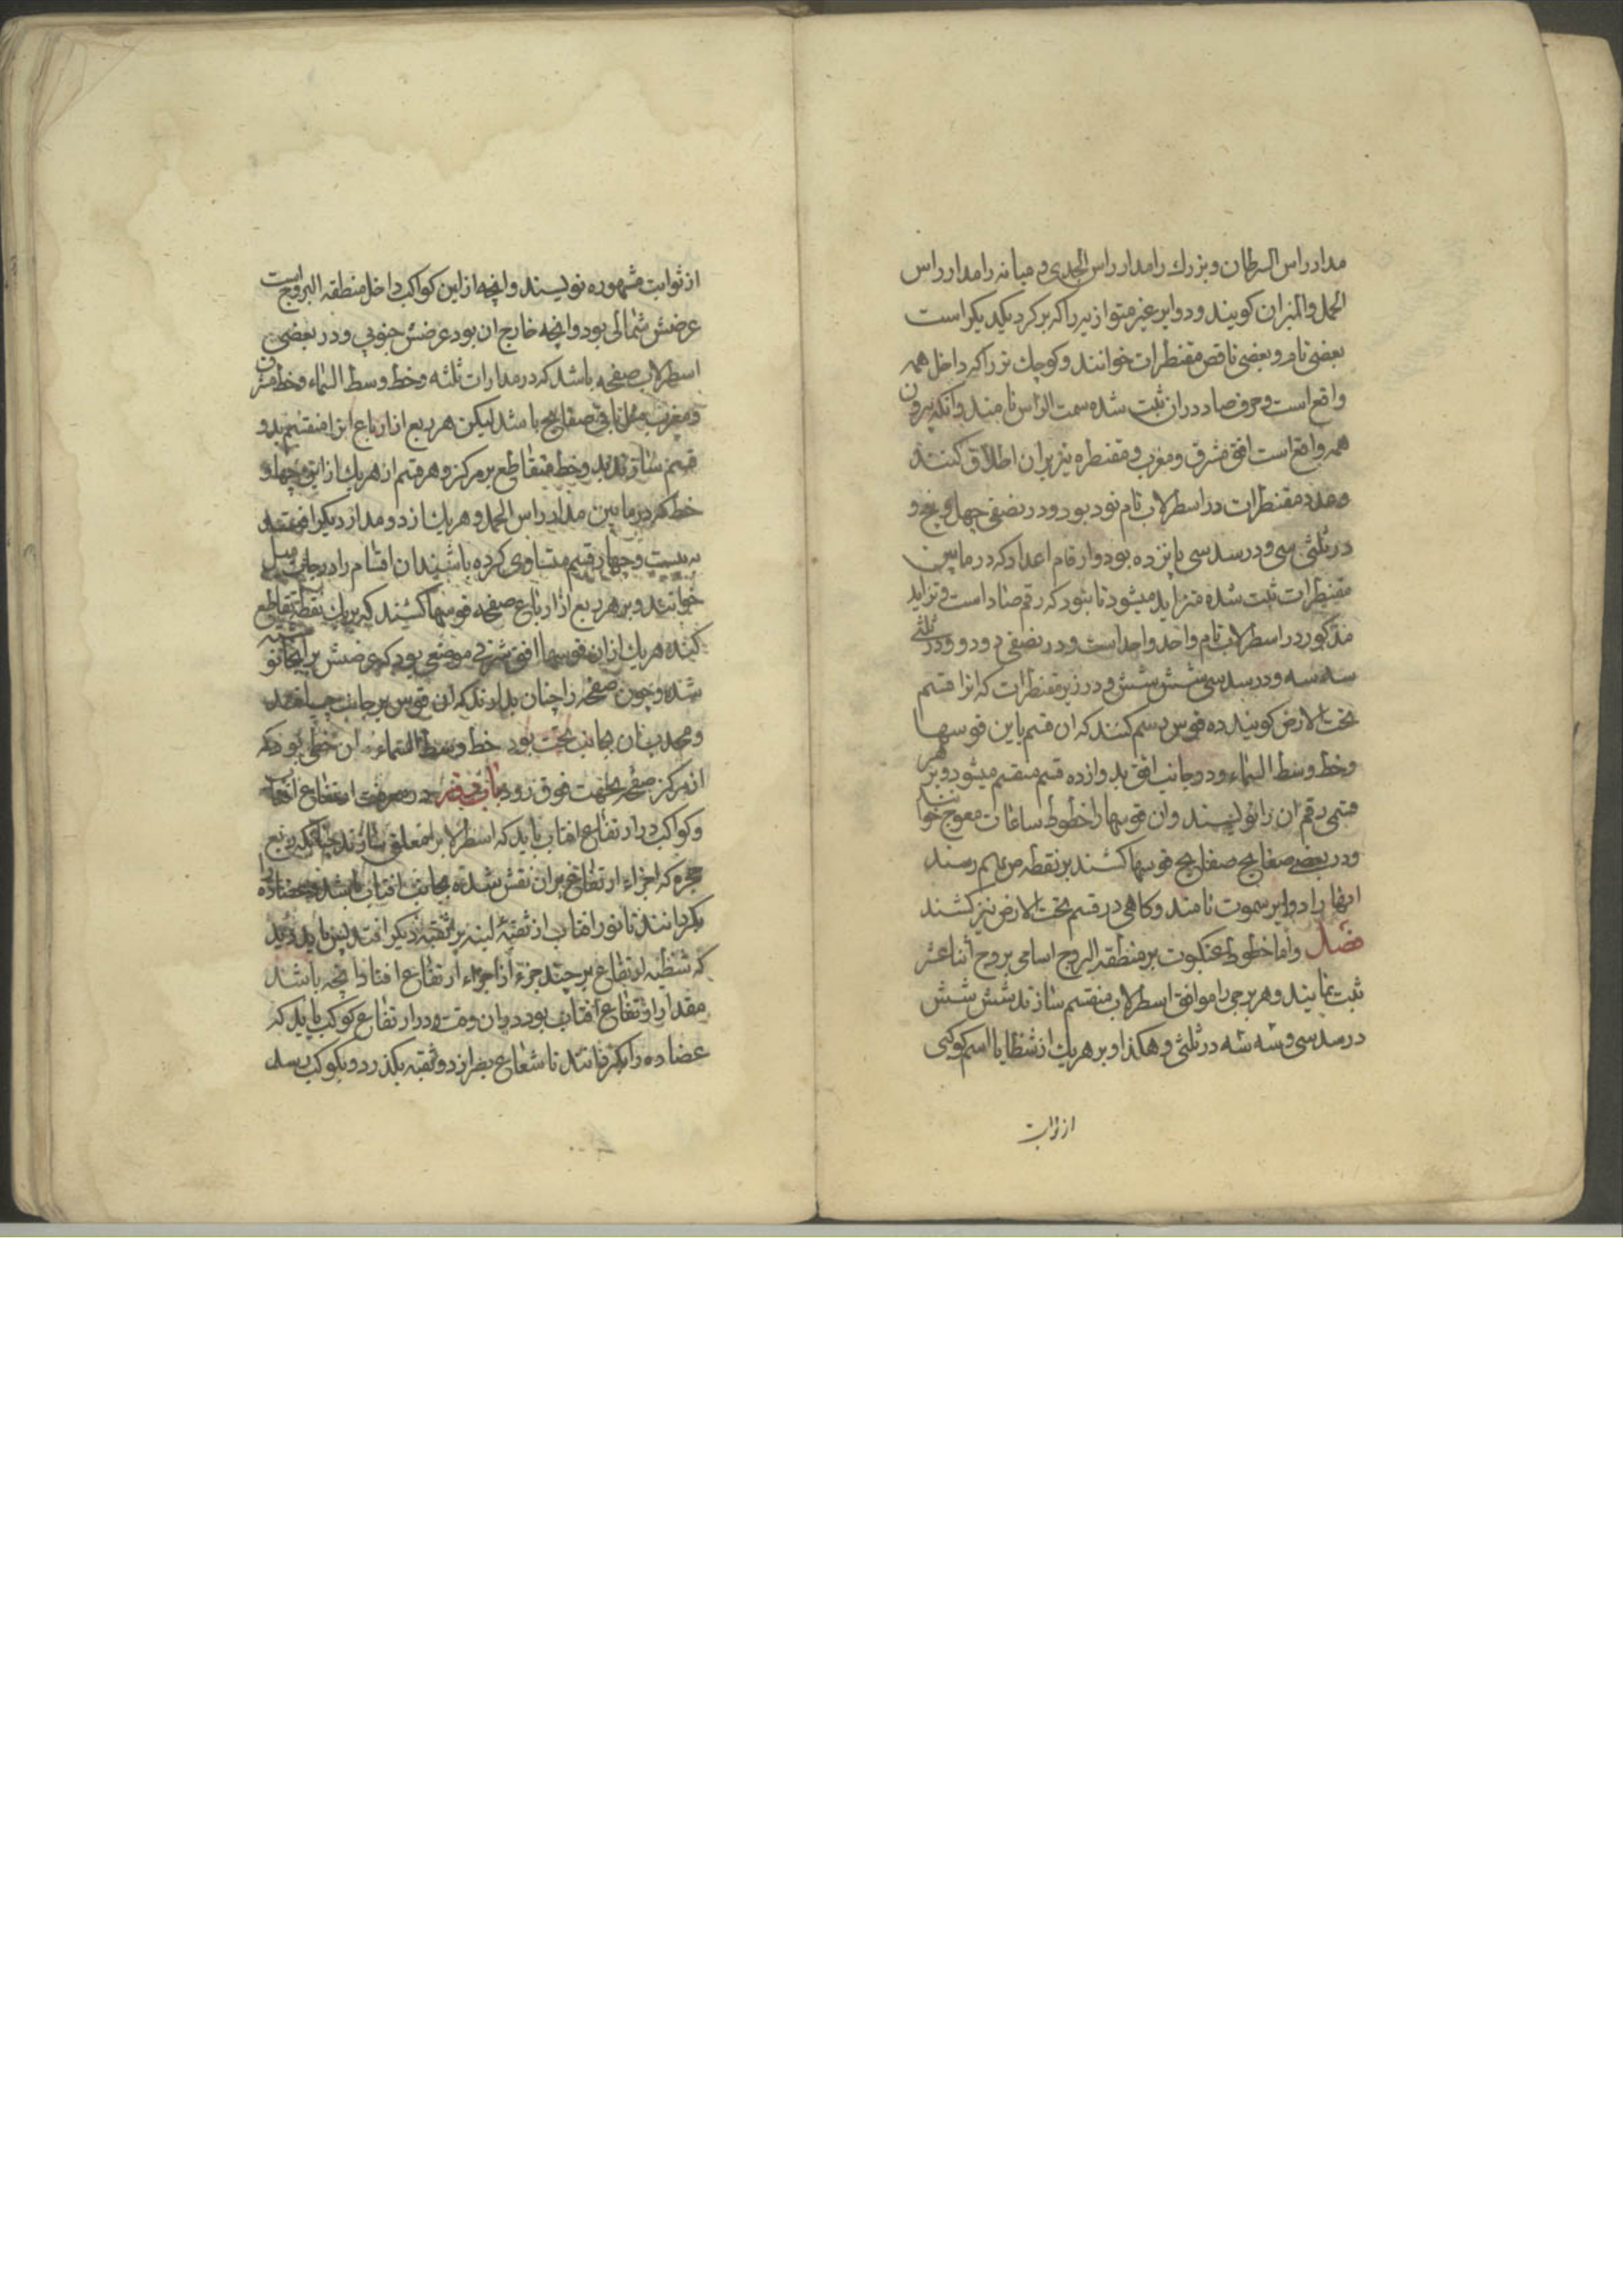 مدار راس السرطان و بزرك را مدار راس الجدی و میانه را مدار راس
الحمل والمیزان کویند و دوایر غیر متوازیه را که بر کرد یکدیکر است
بعضی تام و بعضی ناقص مقنطرات خوانند و کوچك تر را که داخل همه
واقع است و حرف صاد در ان ثبت شده سمت الراس نامند و انکه بیرون
همه واقع است افق مشرق و مغرب و مقنطره نیز بران اطلاق کنند
و عدد مقنطرات در اسطرلاب تام نود بود و در نصفی چهل و پنج و
در ثلثی سی و در سدسی پانزده بود و ارقام اعداد که در مابین
مقنطرات ثبت شده متزاید میشود تا بنود که رقم ص‍ اد است و تزاید
مذکور در اسطرلاب تام واحد واحد است و در نصفی دو دو و در ثلثی
سه سه و در سدسی شش شش و در زیر مقنطرات که انرا قسم
تحت الارض کویند ده قوس رسم کنند که ان قسم باین قوسها
و خط وسط السماء و دو جانب افق بدوازده قسم منقسم میشود و بر هر
قسمی رقم ان را نویسند و ان قوسها را خطوط ساعات معوج خوانند
و در بعضی صفایح قوسها کشند بر نقطه ص بهم رسند
انها را دوایر سموت نامند و کاهی در قسم تحت الارض نیز کشند
فصل واما خطوط عنکبوت بر منطقه البروج اسامی بروج اثنا عشر
ثبت نمایند و هر برجی را موافق اسطرلاب منقسم سازند شش شش
در سدسی و سه سه در ثلثی و هکذا و بر هر یك از شظایا اسم کوکبی
از ثوابت
از ثوابت مشهوره نویسند و انچه ازین کواکب داخل منطقه البروج است
عرضش شمالی بود و انچه خارج ان بود عرضش جنوبی و در بعضی
اسطرلاب صفحه باشد که در مدارات ثلثه و خط وسط السماء و خط مشرق
و مغرب مثل باقی صفایح باشد لیکن هر ربع از ارباع انرا منقسم بدو
قسم سازند بدو خط متقاطع بر مرکز و هر قسم از هر یك از این چهار
خط که در مابین مدار راس الحمل و هر یك از دو مدار دیکر افتد
به بیست و چهار قسم متساوی کرده باشند ان اقسام را درجات میل
خوانند و بر هر ربع از ارباع صفحه قوسها کشند که بر یك نقطه تقاطع
کنند هر یك ازان قوسها افق شرقی موضعی بود که عرضش بر انجا نوشته
شده و چون صفحه را چنان بدارند که ان قوس بر جانب چپ افتد
و محدب ان بجانب تحت بود خط وسط السماء ان خطی بود که
از مرکز صفحه بجهت فوق رود باب در معرفت ارتفاع افتاب
و کواکب در ارتفاع افتاب باید که اسطرلاب را معلق سازند چنانکه ربع
حجره که اجزاء ارتفاع بران نقش شده بجانب افتاب باشد و عضاده را
بکردانند تا نور افتاب از ثقبه لبنه بر ثقبه دیکر افتد پس باید دید
که شظیه ارتفاع بر چند جزء از اجزاء ارتفاع افتاده انچه باشد
مقدار ارتفاع افتاب بود دران وقت و در ارتفاع کوکب باید که
عضاده را بکردانند تا شعاع بصر از دو ثقبه بکذرد و بکوکب رسد